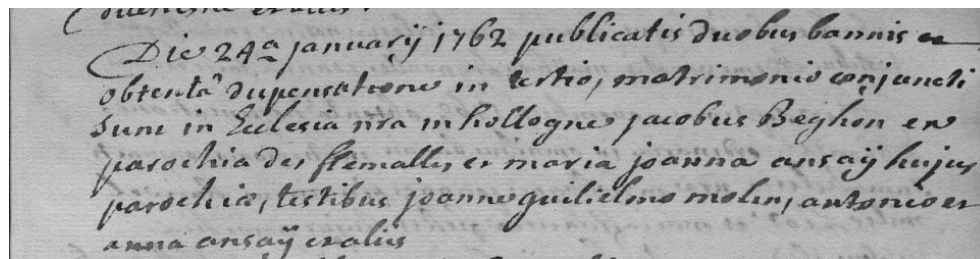 et aliis
Die 24a januarÿ 1762 publicatis duobus bannis et
obtentâ dispensatione in tertio, matrimonio conjuncti
sunt in Eclesia nra in hollogne jacobus Beghon ex
parochia de flemalle, et maria joanna ansaÿ hujus
parochiæ, testibus joanne guilielmo molin, antonio et
anna ansaÿ et aliis